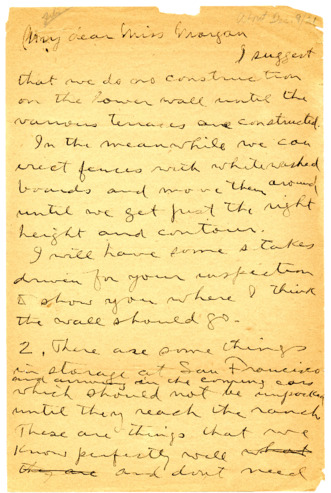 My dear Miss Morgan
I suggest
that we do no construction
on the lower wall until the
various terraces are constructed.
In the meanwhile we can
erect fences with whitewashed
boards and move them around
until we get just the right
height and contour.
I will have some stakes
driven for your inspection
to show you where I think
the wall should go.
2. There are some things
in storage at San Francisco
and arriving in the coming cars
which should not be unpacked
until they reach the ranch
These are things that we
know perfectly well what
they are and dont need